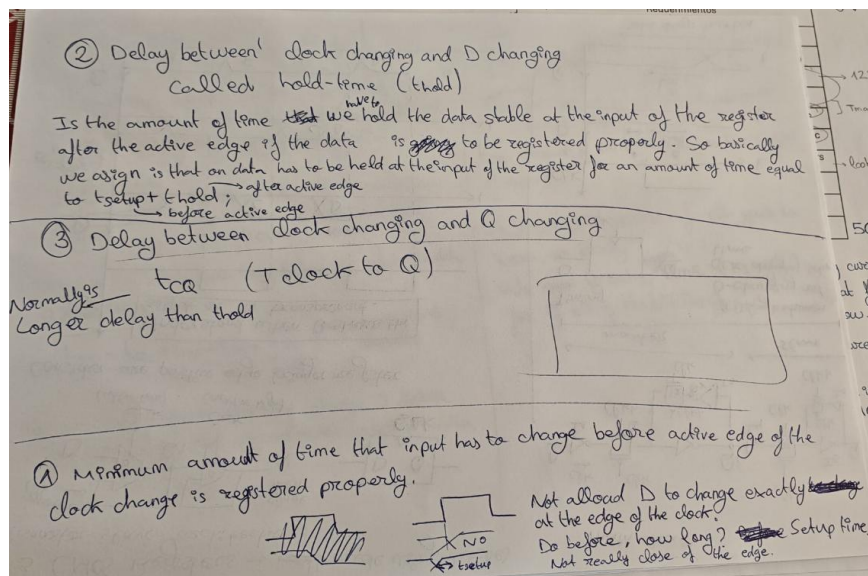 Requerimientos
② Delay between clock changing and D changing
called hold-time (thold)
Is the amount of time we have to hold the data stable at the input of the register
after the active edge if the data is to be registered properly. So basically
we asign is that an data has to be held at the input of the register for an amount of time equal
to tsetup + thold; → after active edge
→ before active edge
③ Delay between clock changing and Q changing
tCQ (T clock to Q)
Normally is
Longer delay than thold
① Minimum amount of time that input has to change before active edge of the
clock change is registered properly.
NO
tsetup
Not allowd D to change exactly
at the edge of the clock.
Do before, how long? Setup time,
Not really close of the edge.